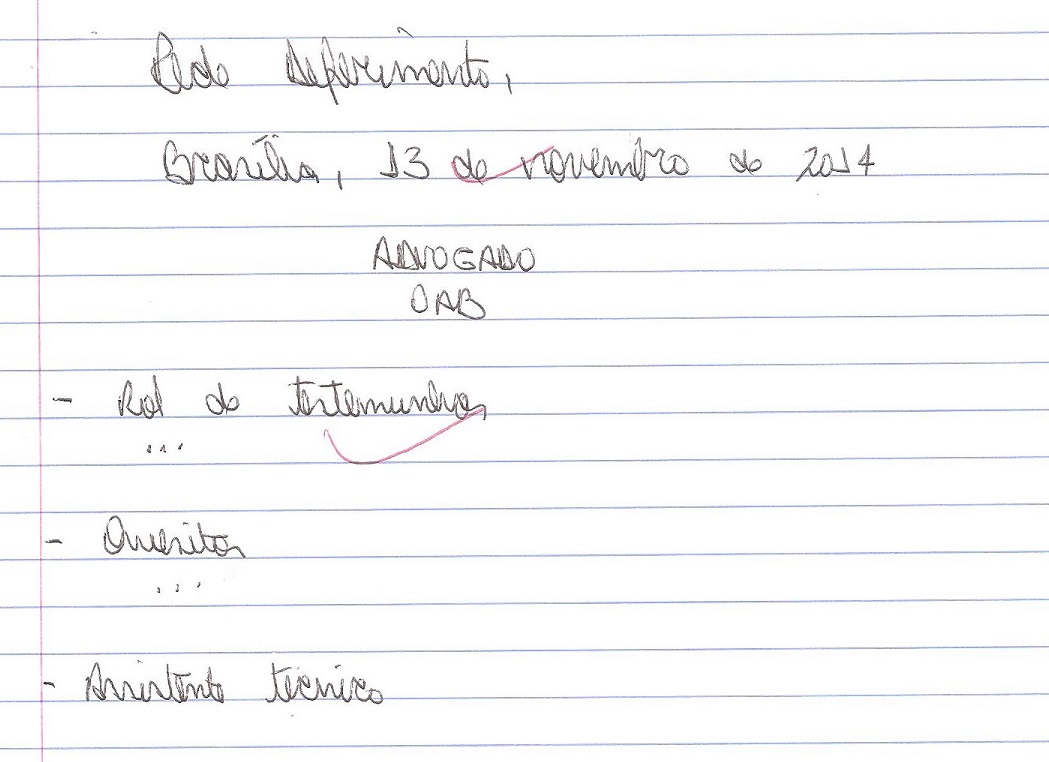 Pede deferimento,
Brasília, 13 de novembro de 2014
ADVOGADO
OAB
- Rol de testemunhas
...
- Quesitos
...
- Assistente técnico